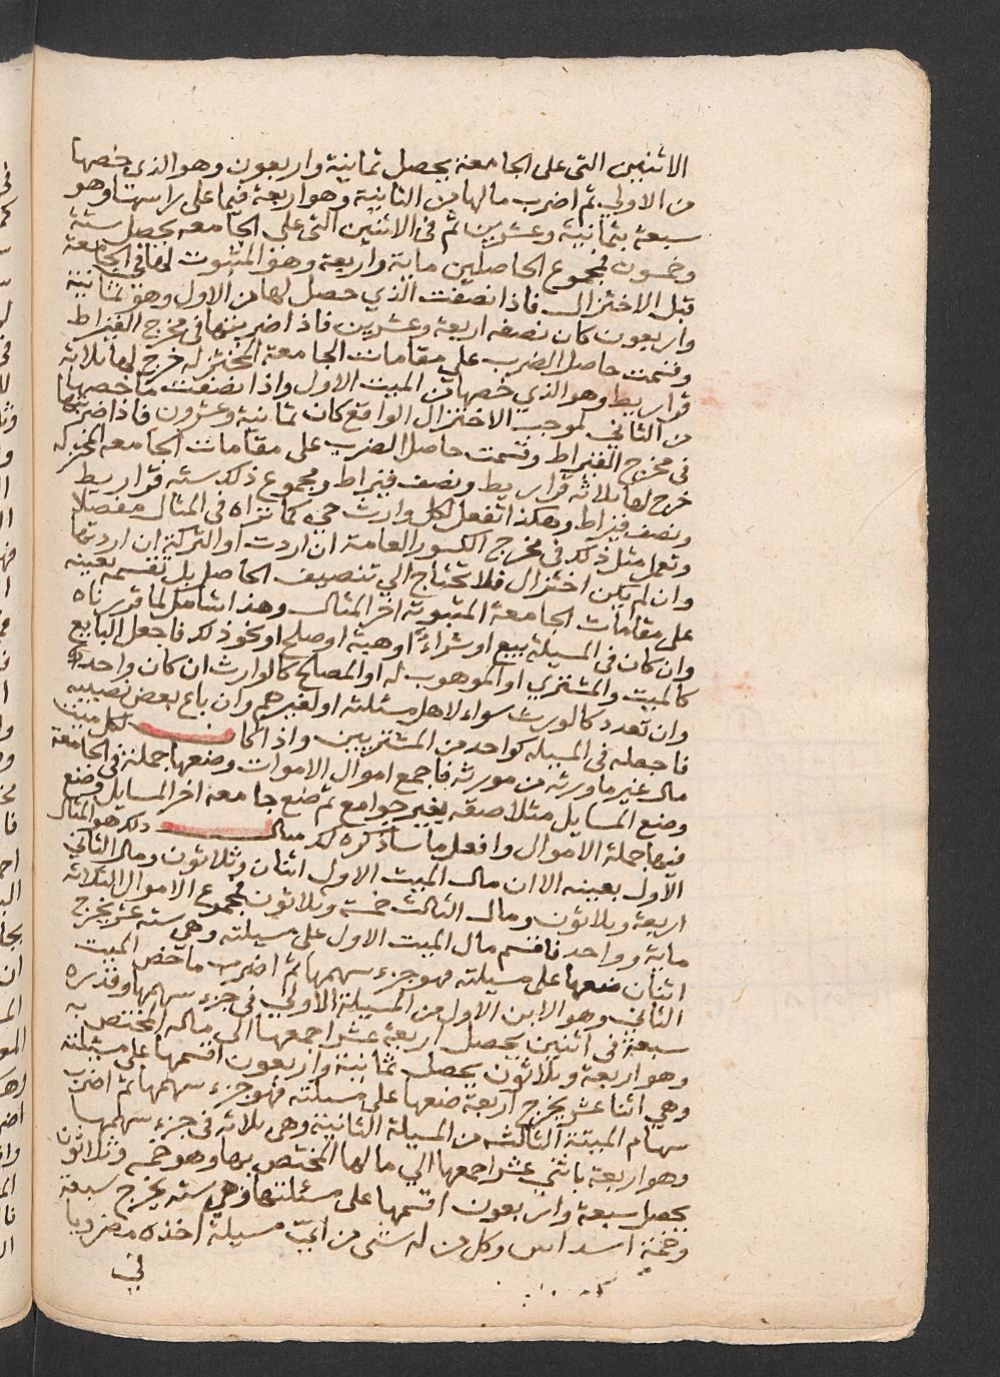 الاثنين التى على الجامعة يحصل ثمانية واربعون وهو الذى خصها
من الاولي ثم اضرب مالها من الثانية وهو اربعة فيما على راسها وهو
سبعة بثمانية وعشرين ثم فى الاثنين التى على الجامعه يحصل ستة
وخمسون فمجموع الحاصلين ماية واربعة وهو المثبوت لها فى الجامعة
قبل الاختزال فاذا نصفت الذي حصل لها من الاول وهو ثمانية
واربعون كان نصفه اربعة وعشرين فاذا ضربتها فى مخرج القيراط
وقسمت حاصل الضرب على مقامات الجامعة المختزله خرج لها ثلاثة
قواريط وهو الذي خصها من الميت الاول واذا نصفت ما خصها
من الثانى لموجب الاختزال الواقع كان ثمانية وعشرون فاذا ضربتها
فى مخرج القيراط وقسمت حاصل الضرب على مقامات الجامعه المختزله
خرج لها ثلاثة قواريط ونصف قيراط ومجموع ذلك ستة قواريط
ونصف قيراط وهكذا تفعل لكل وارث حي كما تراه فى المثال مفصلا
وتعمل مثل ذلك فى مخرج الكسور العامة ان اردت او التركة ان اردتها
وان لم يكن اختزال فلا تحتاج الي تنصيف الحاصل بل تقسمه بعينه
على مقامات الجامعة المثبوتة اخر المثال وهذا شامل لما قررناه
وان كان فى المسيلة بيع او شراء او هبة او صلح او نحو ذلك فاجعل البايع
كالميت والمشتري او الموهوب له او المصالح كالوارث ان كان واحدا
وان تعدد كالورث سواء لاهل مسئلته او لغيرهم وان باع بعض نصيبه
فاجعله فى المسيله كواحد من المشتريين واذا كان لكل ميت
مال غير ما ورثه من مورثه فاجمع اموال الاموات وضعها جملة فى الجامعة
وضع المسايل متلاصقه بغير جوامع ثم ضع جامعه اخر المسايل وضع
فيها جملة الاموال وافعل ما ساذكره لك مثال ذلك هو المثال
الاول بعينه الا ان مال الميت الاول اثنان وثلاثون ومال الثانى
اربعة وثلاثون ومال الثالث خمسة وثلاثون فمجموع الاموال الثلاثه
ماية وواحد فاقسم مال الميت الاول على مسيلته وهى ستة عشر يخرج
اثنان ضعها على مسيلته فهو جزء سهمها ثم اضرب ما خص الميت
الثانى وهو الابن الاول من المسيلة الاولي فى جزء سهمها وقدره
سبعة فى اثنين يحصل اربعة عشر اجمعها الى ماله المختص به
وهو اربعة وثلاثون يحصل ثمانية واربعون اقسمها على مسئلته
وهي اثنا عشر يخرج اربعة ضعها على مسيلته فهو جزء سهمها ثم اضرب
سهام الميتة الثالثه من المسيلة الثانية وهى ثلاثه فى جزء سهمها
وهو اربعة باثنى عشر اجمعها الي مالها المختص بها وهو خمسه وثلاثون
يحصل سبعة واربعون اقسمها على مسئلتها وهى ستة يخرج سبعة
وخمسة اسداس وكل من له شى من ايّ مسيلة اخذه مضروبا
فى